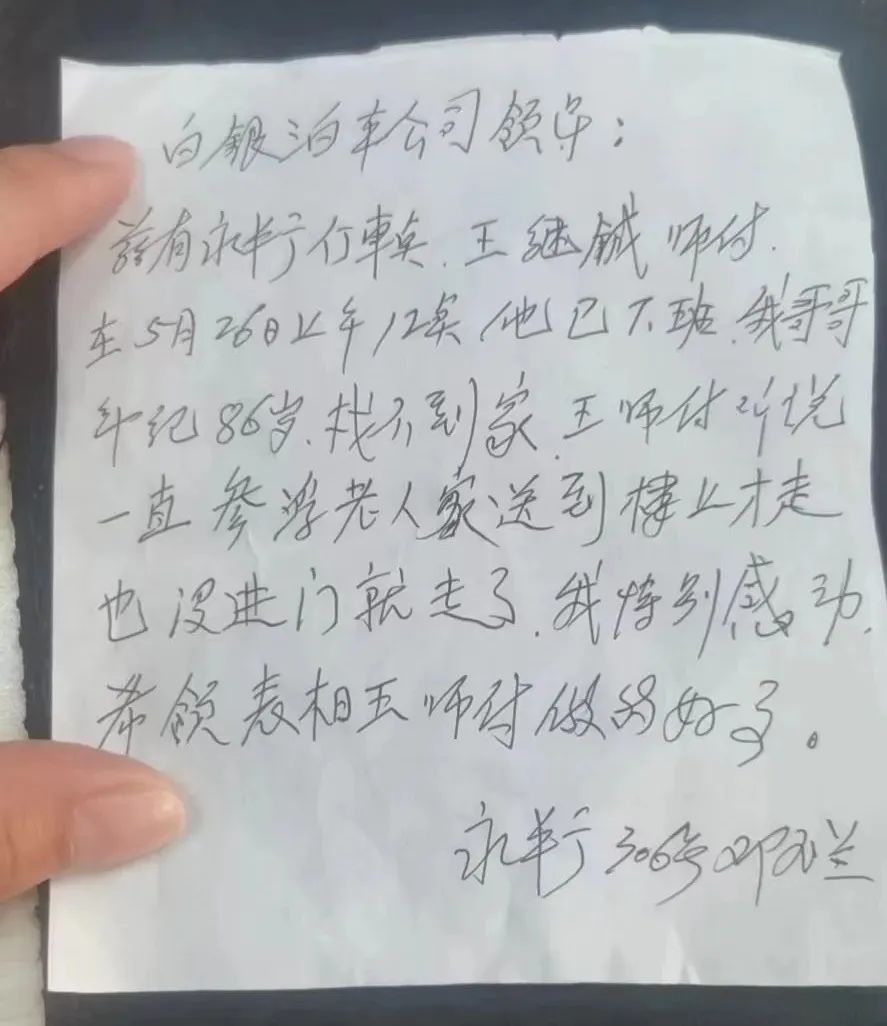 白银泊车公司领导：
兹有永丰行车点.王继钺师付.
在5月26日上午12点他已下班.我哥哥
年纪86岁.找不到家.王师付听说
一直参浮老人家送到楼上才走
也没进门就走了.我特别感动.
希领表相王师付做的好事。
永丰 306号邓玉兰